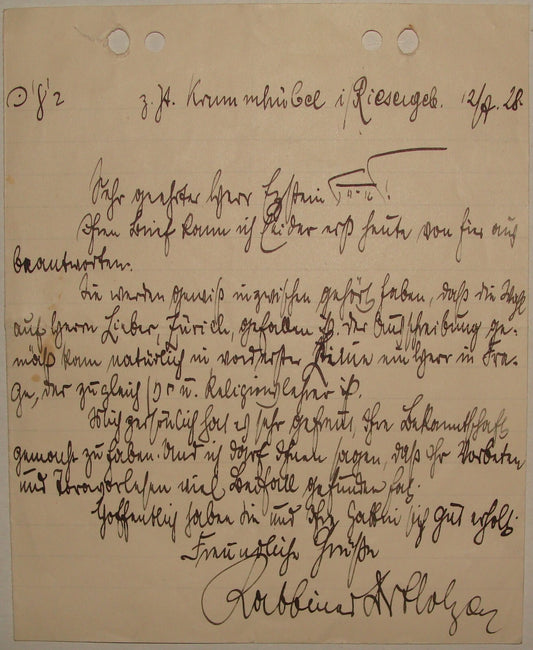 z. Zt. Krummhübel i/Riesengeb. 12/ 28.
Sehr geehrter Herr Epstein
Ihren Brief kann ich leider erst heute von hier aus
beantworten.
Sie werden gewiß inzwischen gehört haben, daß die Wahl
auf Herrn Lieber, Zürich, gefallen ist. Der Ausschreibung ge-
mäß kam natürlich in vorderster Reihe ein Herr in Fra-
ge, der zugleich u. Religionslehrer ist.
Mich persönlich hat es sehr gefreut, Ihre Bekanntschaft
gemacht zu haben. Und ich darf Ihnen sagen, daß Ihr Vorbeten
und Thoravorlesen viel Beifall gefunden hat.
Hoffentlich haben Sie und Ihre Gattin sich gut erholt.
Freundliche Grüße
Rabbiner